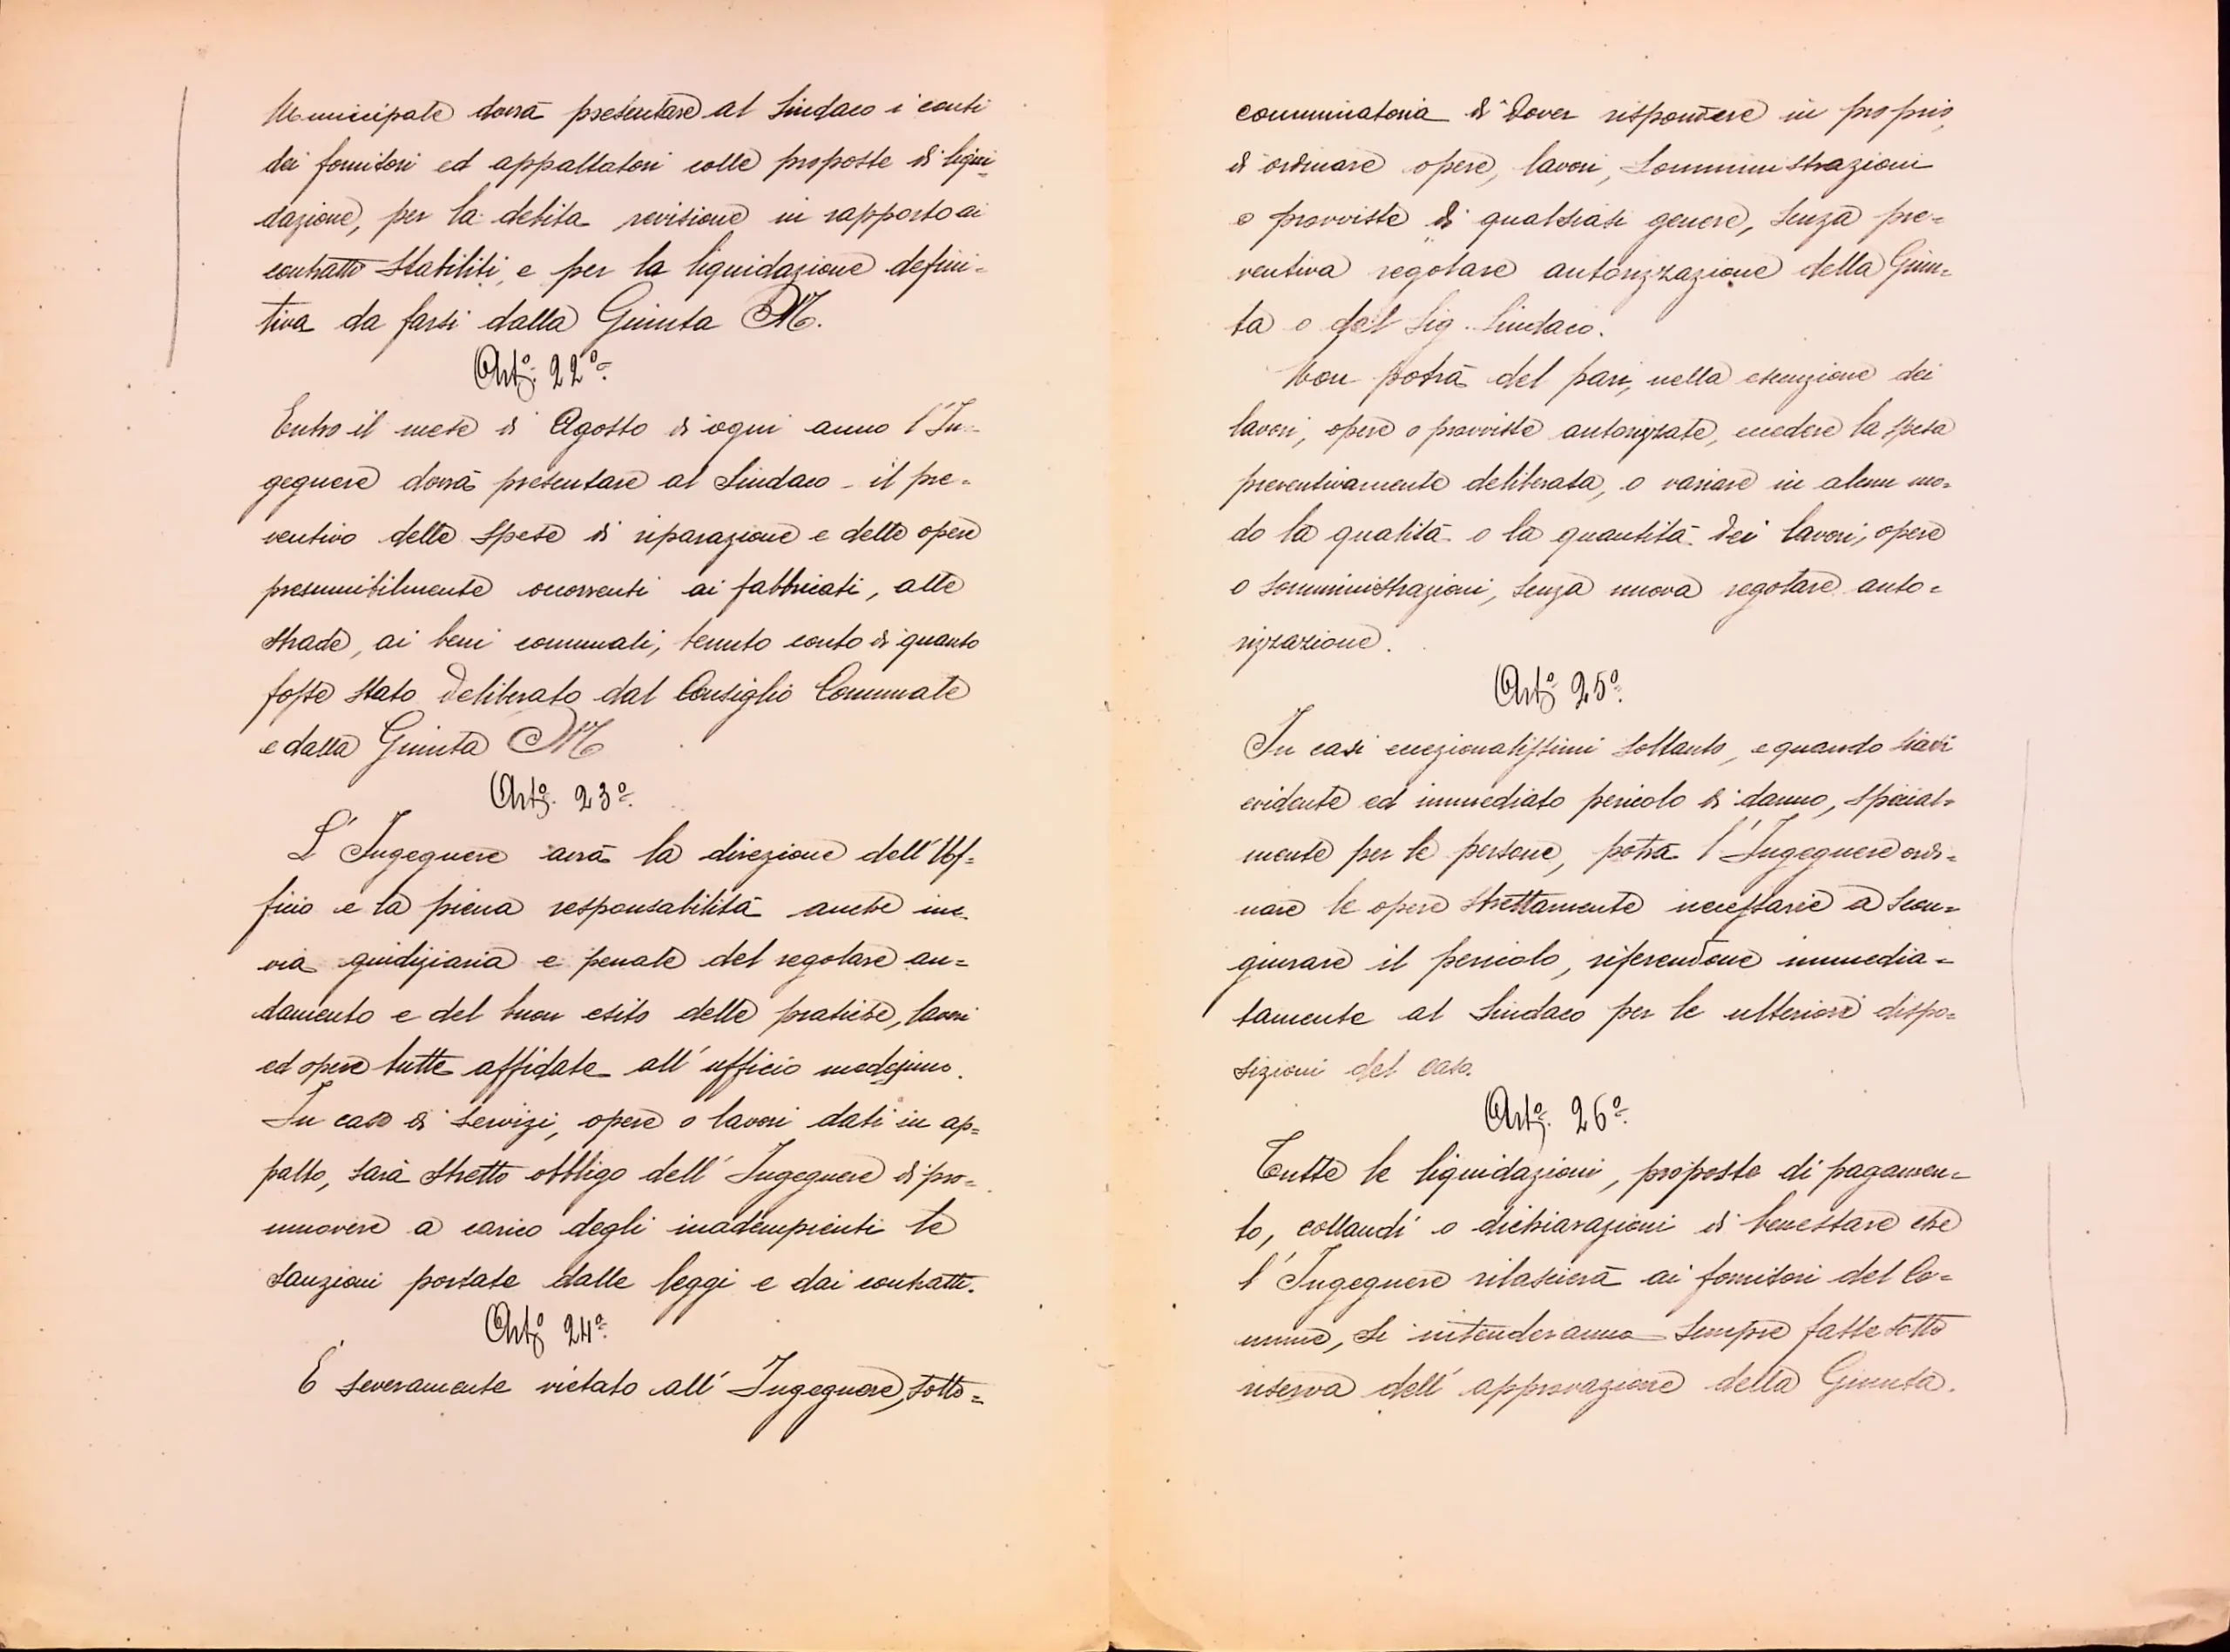 Municipale dovrà presentare al Sindaco i conti
dei fornitori ed appaltatori colle proposte di liqui=
dazione, per la debita revisione in rapporto ai
contratti stabiliti, e per la liquidazione defini=
tiva da farsi dalla Giunta M.
Art.º 22º
Entro il mese di Agosto di ogni anno l'In=
gegnere dovrà presentare al Sindaco - il pre=
ventivo delle spese di riparazione e delle opere
presumibilmente occorrenti ai fabbricati, alle
strade, ai beni comunali, tenuto conto di quanto
fosse stato deliberato dal Consiglio Comunale
e dalla Giunta M
Art.º 23º
L'Ingegnere avrà la direzione dell'Uf=
ficio e la piena responsabilità anche in
via giudiziaria e penale del regolare an=
damento e del buon esito delle pratiche, lavori
ed opere tutte affidate all'ufficio medesimo.
In caso di servizi, opere o lavori dati in ap=
palto, sarà stretto obbligo dell'Ingegnere di pro=
muovere a carico degli inadempienti le
sanzioni portate dalle leggi e dai contratti.
Art.º 24º
È severamente vietato all'Ingegnere, sotto=
comminatoria di dover rispondere in proprio,
di ordinare opere, lavori, somministrazioni
o provviste di qualsiasi genere, senza pre=
ventiva regolare autorizzazione della Giun=
ta o del Sig. Sindaco.
Non potrà del pari, nella esecuzione dei
lavori, opere o provviste autorizzate, eccedere la spesa
preventivamente deliberata, o variare in alcun mo=
do la qualità o la quantità dei lavori, opere
o somministrazioni, senza nuova regolare auto=
rizzazione.
Art.º 25º
In casi eccezionalissimi soltanto, e quando siavi
evidente ed immediato pericolo di danno, special=
mente per le persone, potrà l'Ingegnere ordi=
nare le opere strettamente necessarie a scon=
giurare il pericolo, riferendone immedia=
tamente al Sindaco per le ulteriori dispo=
sizioni del caso.
Art.º 26º
Tutte le liquidazioni, proposte di pagamen=
to, collaudi o dichiarazioni di benestare che
l'Ingegnere rilascierà ai fornitori del Co=
mune, si intenderanno sempre fatte sotto
riserva dell'approvazione della Giunta.